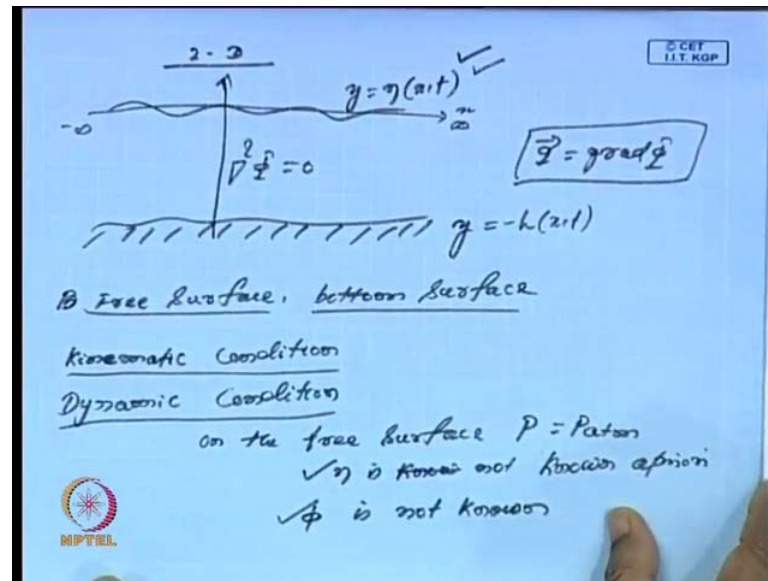 2-D
© CET
I.I.T. KGP
y = η(x,t)
-∞
x
∞
∇²Φ = 0
q⃗ = grad Φ
y = -h(x,t)
B Free Surface, bottom surface
Kinematic Condition
Dynamic Condition
on the free surface P = Patm
✓η is not known apriori
✓φ is not known
NPTEL